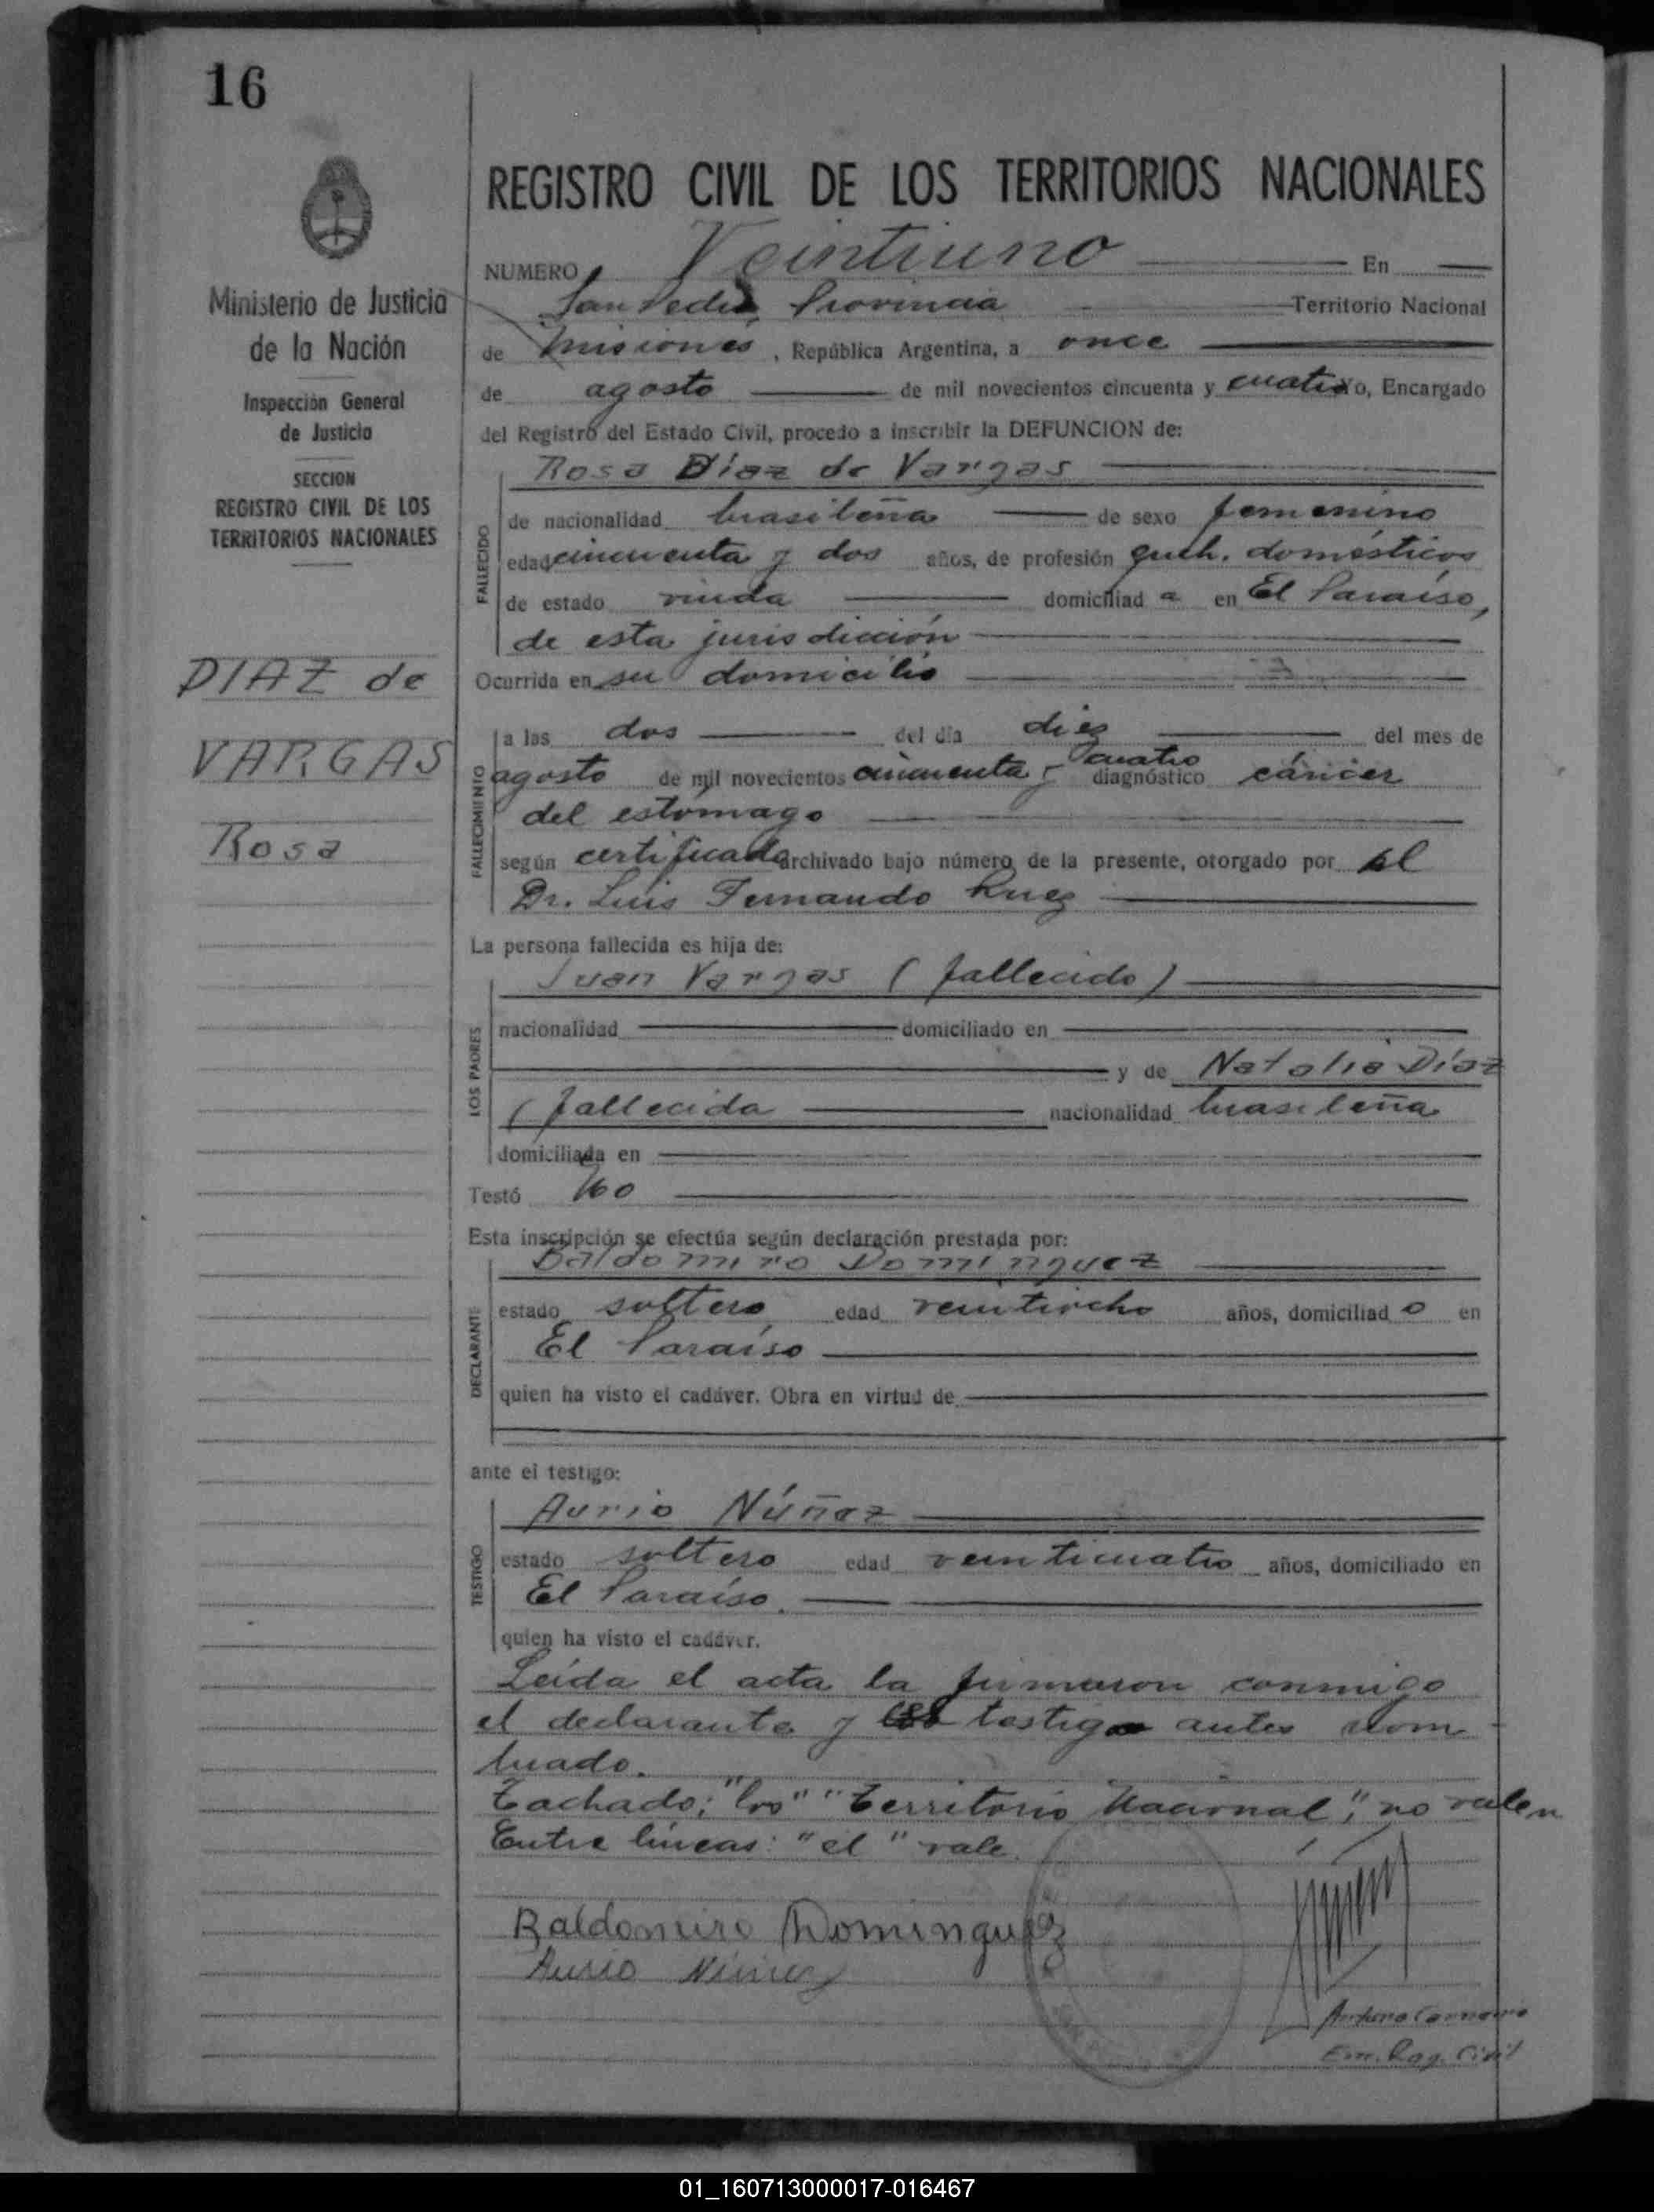 16
Ministerio de Justicia
de la Nación
Inspección General
de Justicia
SECCION
REGISTRO CIVIL DE LOS
TERRITORIOS NACIONALES
DIAZ de
VARGAS
Rosa
REGISTRO CIVIL DE LOS TERRITORIOS NACIONALES
NUMERO Veintiuno En
San Pedro, Provincia Territorio Nacional
de Misiones, República Argentina, a once
de agosto de mil novecientos cincuenta y cuatro Yo, Encargado
del Registro del Estado Civil, procedo a inscribir la DEFUNCION de:
Rosa Díaz de Vargas
FALLECIDO
de nacionalidad brasileña de sexo femenino
edad cincuenta y dos años, de profesión queh. domésticos
de estado viuda domiciliad a en El Paraíso,
de esta jurisdicción
Ocurrida en su domicilio
FALLECIMIENTO
a las dos del día diez del mes de
agosto de mil novecientos cincuenta y cuatro diagnóstico cáncer
del estómago
según certificado archivado bajo número de la presente, otorgado por el
Dr. Luis Fernando
La persona fallecida es hija de:
Juan Vargas (fallecido)
LOS PADRES
nacionalidad domiciliado en
y de Natalia Díaz
(fallecida nacionalidad brasileña
domiciliada en
Testó No
Esta inscripción se efectúa según declaración prestada por:
Baldomiro Domínguez
DECLARANTE
estado soltero edad veintiocho años, domiciliad o en
El Paraíso
quien ha visto el cadáver. Obra en virtud de
ante el testigo:
Aurio Núñez
TESTIGO
estado soltero edad veinticuatro años, domiciliado en
El Paraíso.
quien ha visto el cadáver.
Leída el acta la firmaron conmigo
el declarante y testigo antes nom-
brado.
Tachado: "los" "Territorio Nacional", no valen
Entre líneas: "el" vale.
Baldomiro Dominguez
Aurio Núñez
Arturo
Enc. Reg. Civil
01_160713000017-016467